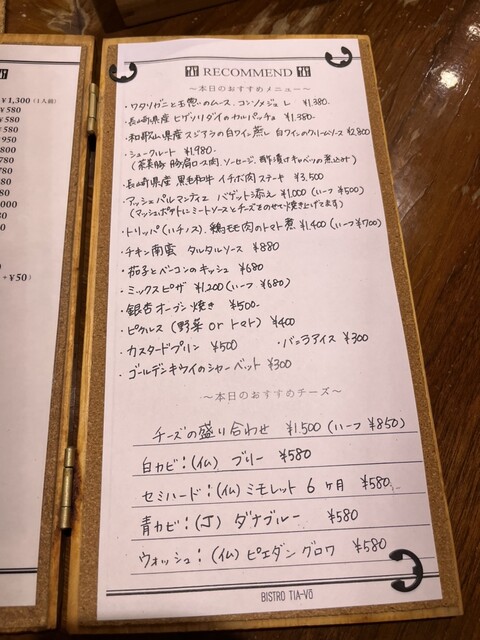 ¥1,300(1人前)
¥580
¥580
RECOMMEND
～本日のおすすめメニュー～
・ワタリガニと玉葱のムース、コンソメジュレ ¥1,380.
・長崎県産 ヒゲソリダイのカルパッチョ ¥1,380.
・和歌山県産 スジアラの白ワイン蒸し 白ワインのクリームソース ¥2,800
・シュークルート ¥1,980.
(茶美豚 豚肩ロース肉、ソーセージ、酢漬けキャベツの煮込み)
・長崎県産 黒毛和牛 イチボ肉ステーキ ¥3,500
・アッシェパルマンティエ バゲット添え ¥1,000(ハーフ ¥500)
(マッシュポテトにミートソースとチーズをのせて焼き上げてます)
・トリッパ(ハチノス)、鶏モモ肉のトマト煮 ¥1,400(ハーフ¥700)
・チキン南蛮 タルタルソース ¥880
・茄子とベーコンのキッシュ ¥680
・ミックスピザ ¥1,200(ハーフ ¥680)
・銀杏オーブン焼き ¥500.
・ピクルス(野菜 or トマト) ¥400
・カスタードプリン ¥500 ・バニラアイス ¥300
・ゴールデンキウイのシャーベット ¥300
～本日のおすすめチーズ～
チーズの盛り合わせ ¥1,500(ハーフ ¥850)
白カビ:(仏) ブリー ¥580
セミハード:(仏) ミモレット 6ヶ月 ¥580
青カビ:(J) ダナブルー ¥580
ウォッシュ:(仏) ピエダングロワ ¥580
BISTRO TIA-VÖ